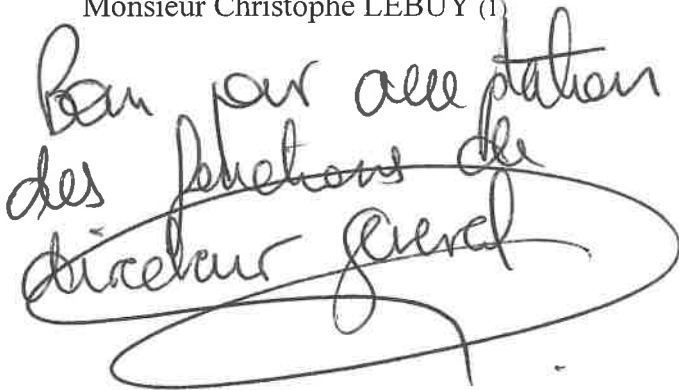 Monsieur Christophe LEBUY (1)
Bon pour acceptation
des fonctions de
directeur général